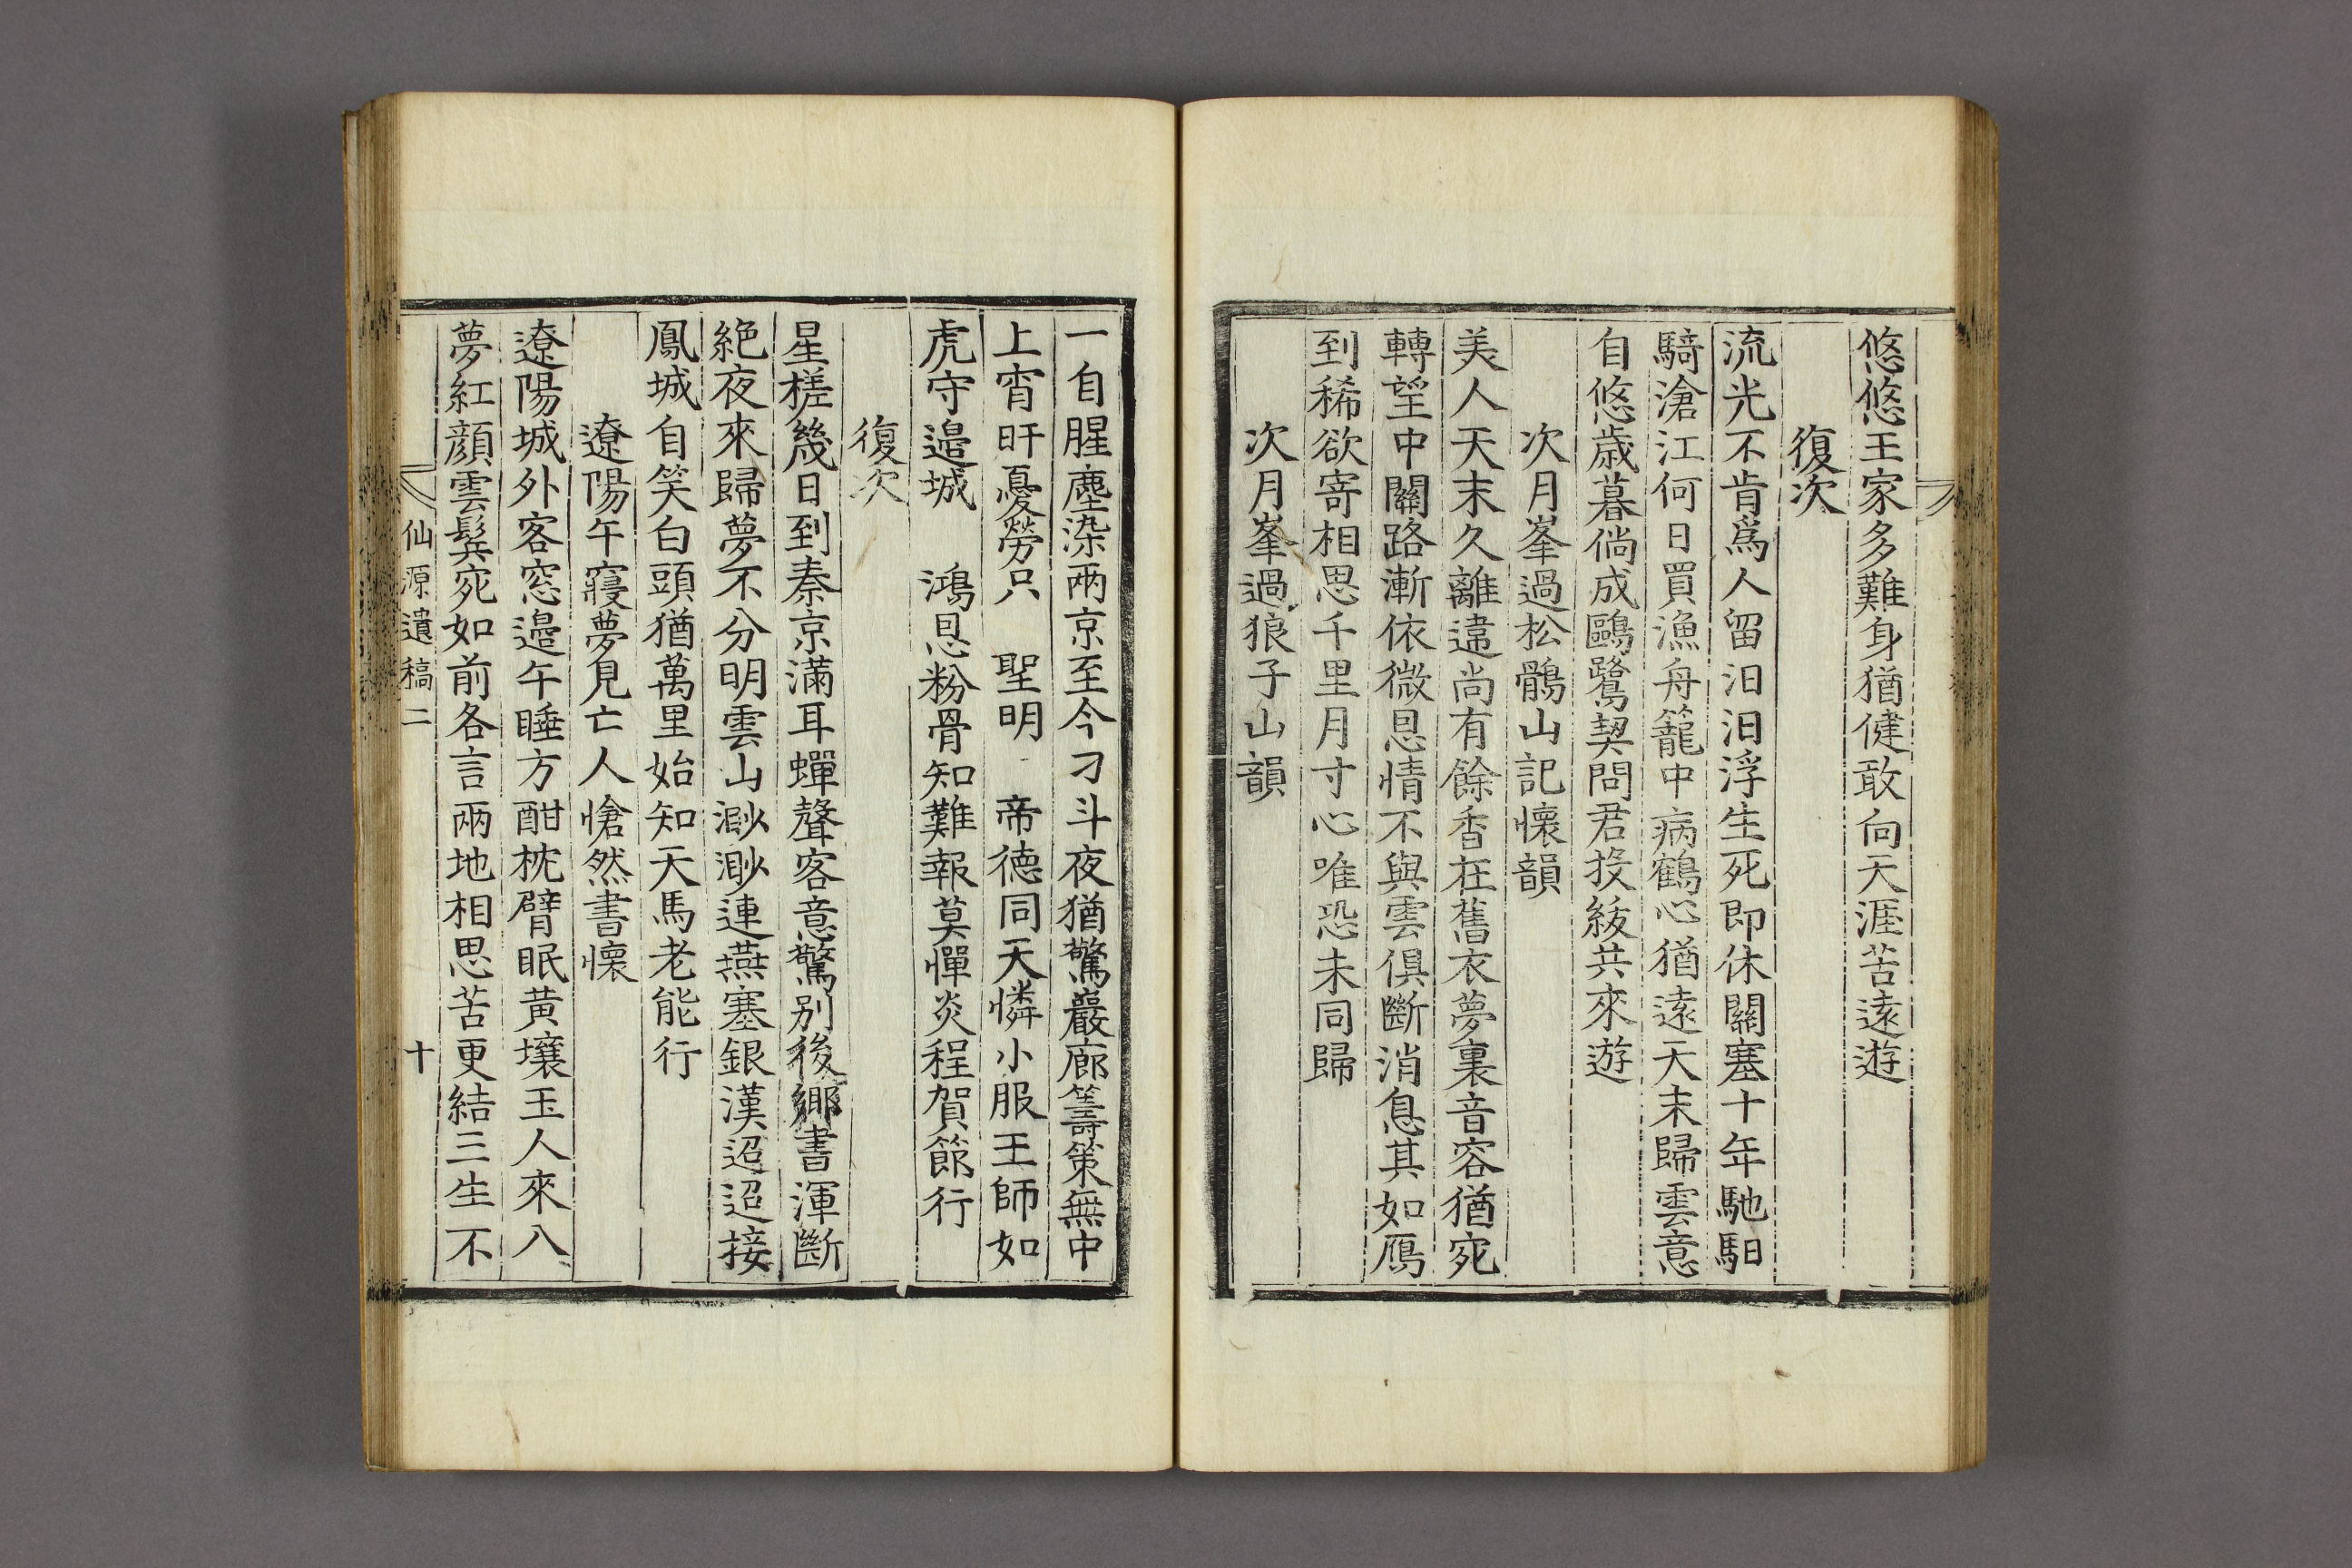 悠悠王家多難身猶健敢向天涯苦遠遊
復次
流光不肯爲人留汨汨浮生死即休關塞十年馳馹
騎滄江何日買漁舟籠中病鶴心猶遠天末歸雲意
自悠歲暮倘成鷗鷺契問君投紱共來遊
次月峯過松鶻山記懷韻
美人天末久離違尚有餘香在舊衣夢裏音容猶宛
轉望中關路漸依微恩情不與雲俱斷消息其如鴈
到稀欲寄相思千里月寸心唯恐未同歸
次月峯過狼子山韻
一自腥塵染兩京至今刁斗夜猶驚巖廊籌策無中
上宵旰憂勞只 聖明 帝德同天憐小服王師如
虎守邊城 鴻恩粉骨知難報莫憚炎程賀節行
復次
星槎幾日到秦京滿耳蟬聲客意驚別後鄉書渾斷
絶夜來歸夢不分明雲山渺渺連燕塞銀漢迢迢接
鳳城自笑白頭猶萬里始知天馬老能行
遼陽午寢夢見亡人愴然書懷
遼陽城外客窓邊午睡方酣枕臂眠黃壤玉人來入
夢紅顔雲鬂宛如前各言兩地相思苦更結三生不
仙源遺稿二 十